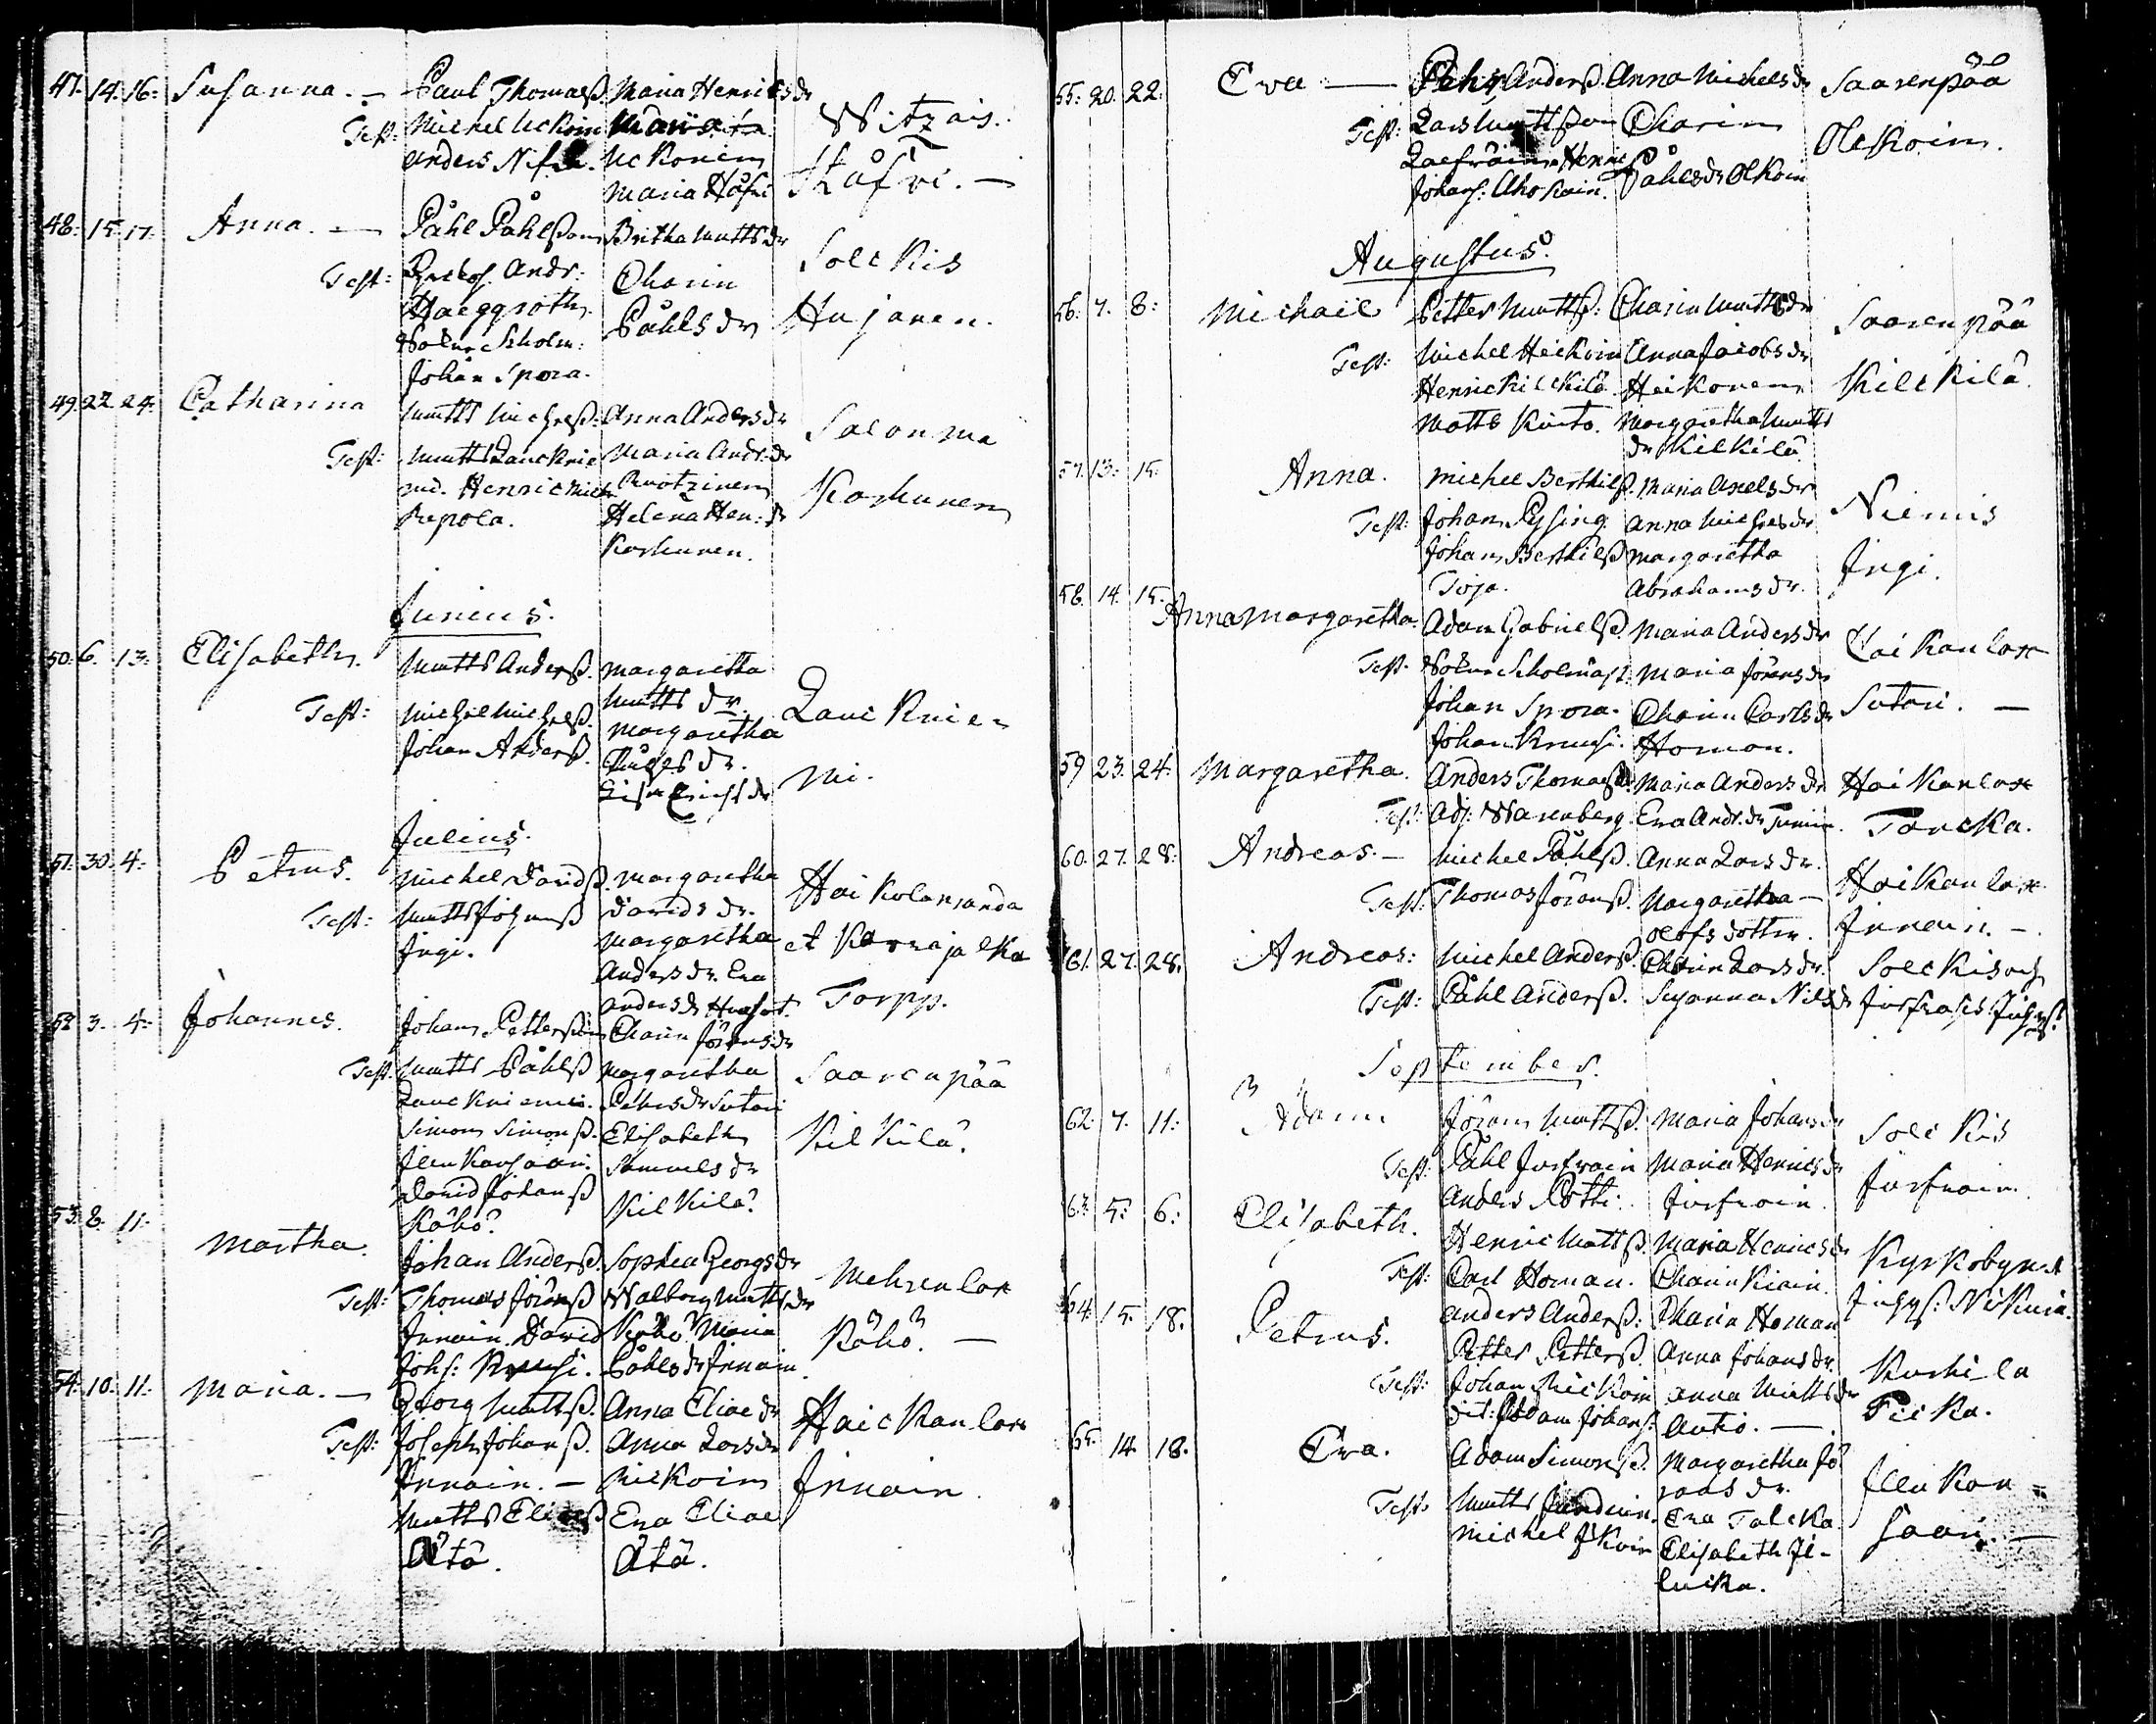 47. 14. 16. Susanna. — Paul Thomaß. Maria Henricsdr Witzais.
Test: Michel Uckoin Maria
Anders Uckonen Kåfri. —
Maria Håfri
48. 15. 17. Anna. — Påhl Påhlßon Britha Mattsdr Solckis
Test: Andr: Charin
Haeggroth. Påhlsdr Hujanen.
Scholm:
Johan Spora.
49. 22. 24. Catharina Matts Michelß. Anna Andersdr Salonma
Test: Matts Laucknie Maria Andr:dr
mi. Henric Mich Ruotzinen Korhunen
Repola. Helena Hen:dr
Korhunen.
Junius.
50. 6. 13. Elisabeth. Matts Anderß. Margaretha
Mattsdr. Laucknie=
Test: Michel Michelß. Margaretha
Johan Anderß. dr.
Lisa Ericsdr mi.
Julius.
51. 30. 4. Petrus. Michel Davidß. Margaretha Haikolanranda
Test: Matts Johanß Davidsdr.
Jngi. Margaretha et Karrajalka
Andersdr. Eva
Andersdr Torpp.
52 3. 4. Johannes. Johan Petterßon Charin Jöransdr
Test. Matts Påhlß Margaretha Saarenpää
Lauckniemi. Petersdr Sutari
Simon Simonß. Elisabeth Kilkilä.
Jlenkansaari. Samuelsdr
David Johanß Kilkilä.
Köhö.
53. 8. 11. Martha. Johan Anderß. Sophia Georgsdr Mehrenlax
Test: Thomas Jöranß Walborg Mattsdr
Jnnain. David Köhö. Maria Köhö. —
Johs: Kruusi. Påhlsdr Jnnain.
54. 10. 11. Maria. — Georg Mattsß. Anna Eliaedr Haickanlax
Test: Joseph Johanß. Anna Larsdr
Jnnain. — Mickoin Jnnain.
Matts Eliaeß Eva Eliae
Ätä. Ätä.
55. 20. 22. Eva — Pehr Anderß. Anna Michelsdr Saarenpää
Test: Lars Mattßon Charin Olckoin.
Henric Påhlsdr Olkoin
Johans: Ahokain.
Augustus.
56. 7. 8. Michael Petter Mattß: Charin Mattsdr Saarenpää
Test: Michel Heikoin Anna Jacobsdr
Henric Kilckilä Heikonen Kilckilä.
Matts Kurto. Margaretha Matts
dr Kilkilä.
57. 13. 15. Anna. Michel Berthilß. Maria Axelsdr Niemis
Test: Johan Pysing Anna Michelsdr
Johan Berthilß Margaretha Jngi.
Toja. Abrahamsdr.
58. 14. 15. Anna Margaretha. Adam Gabrielß. Maria Andersdr Haikanlax
Test. Scholmäst: Maria Jöransdr
Johan Spora. Charin Carlsdr Sutari. —
Johan Kruusi. Homan.
59 23. 24. Margaretha. Anders Thomaß. Maria Andersdr Haikanlax
Test: Adj: Warenberg. Eva Andr.dr Torcka.
60. 27. 28. Andreas. — Michel Påhlß. Anna Larsdr. Haikanlax.
Test: Thomas Jöranß. Margaretha — Jnnain. —
Olofsdotter.
61. 27. 28. Andreas: Michel Anderß. Charin Larsdr. Solckis och
Test: Påhl Anderß. Susanna Nilsdr
September.
62. 7. 11. Adam Jöran Mattß. Maria Johansdr Solckis
Test: Påhl Jurfwain Maria Henricsdr
Anders Pötti. Jurfwain. Jurfwain.
63. 5. 6. Elisabeth. Henric Mattß. Maria Henricsdr Kyrkobyn et
Test: Carl Homan. Charin Kiain.
Anders Anderß: Maria Homan
64. 15. 18. Petrus. Petter Petterß. Anna Johansdr. Kurkila
Test: Johan Mickoin Anna Mattsdr
dit: Adam Johans: Antio. — Picka.
65. 14. 18. Eva. Adam Simonß. Margaretha Jö
ransdr. Jlenkan=
Test: Matts Eva Talcka
Michel Elisabeth Jl- saari. —
lucka.